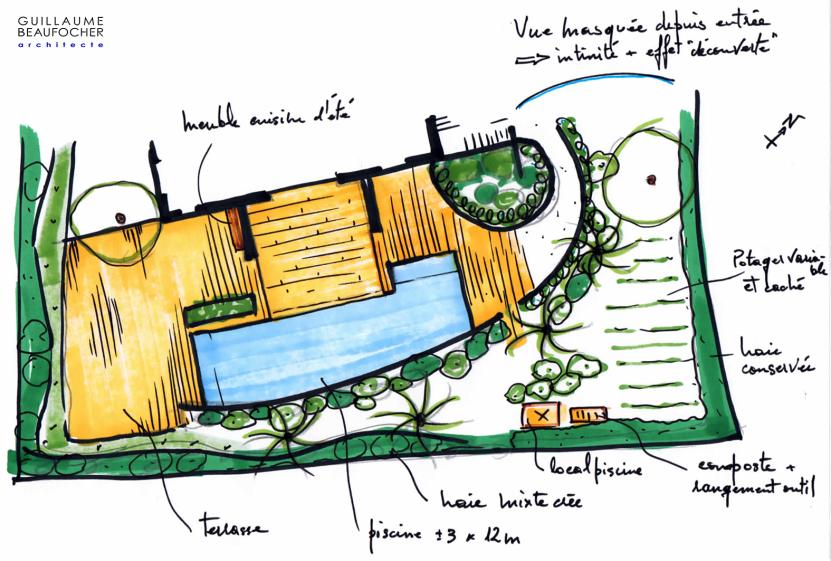 GUILLAUME
BEAUFOCHER
architecte
Vue masquée depuis entrée
⇒ intimité + effet "découverte"
meuble cuisine d'été
N
Potager varia-
ble
et caché
haie
conservée
local piscine
composte +
rangement outil
haie mixte créée
terrasse
piscine ±3 x 12m